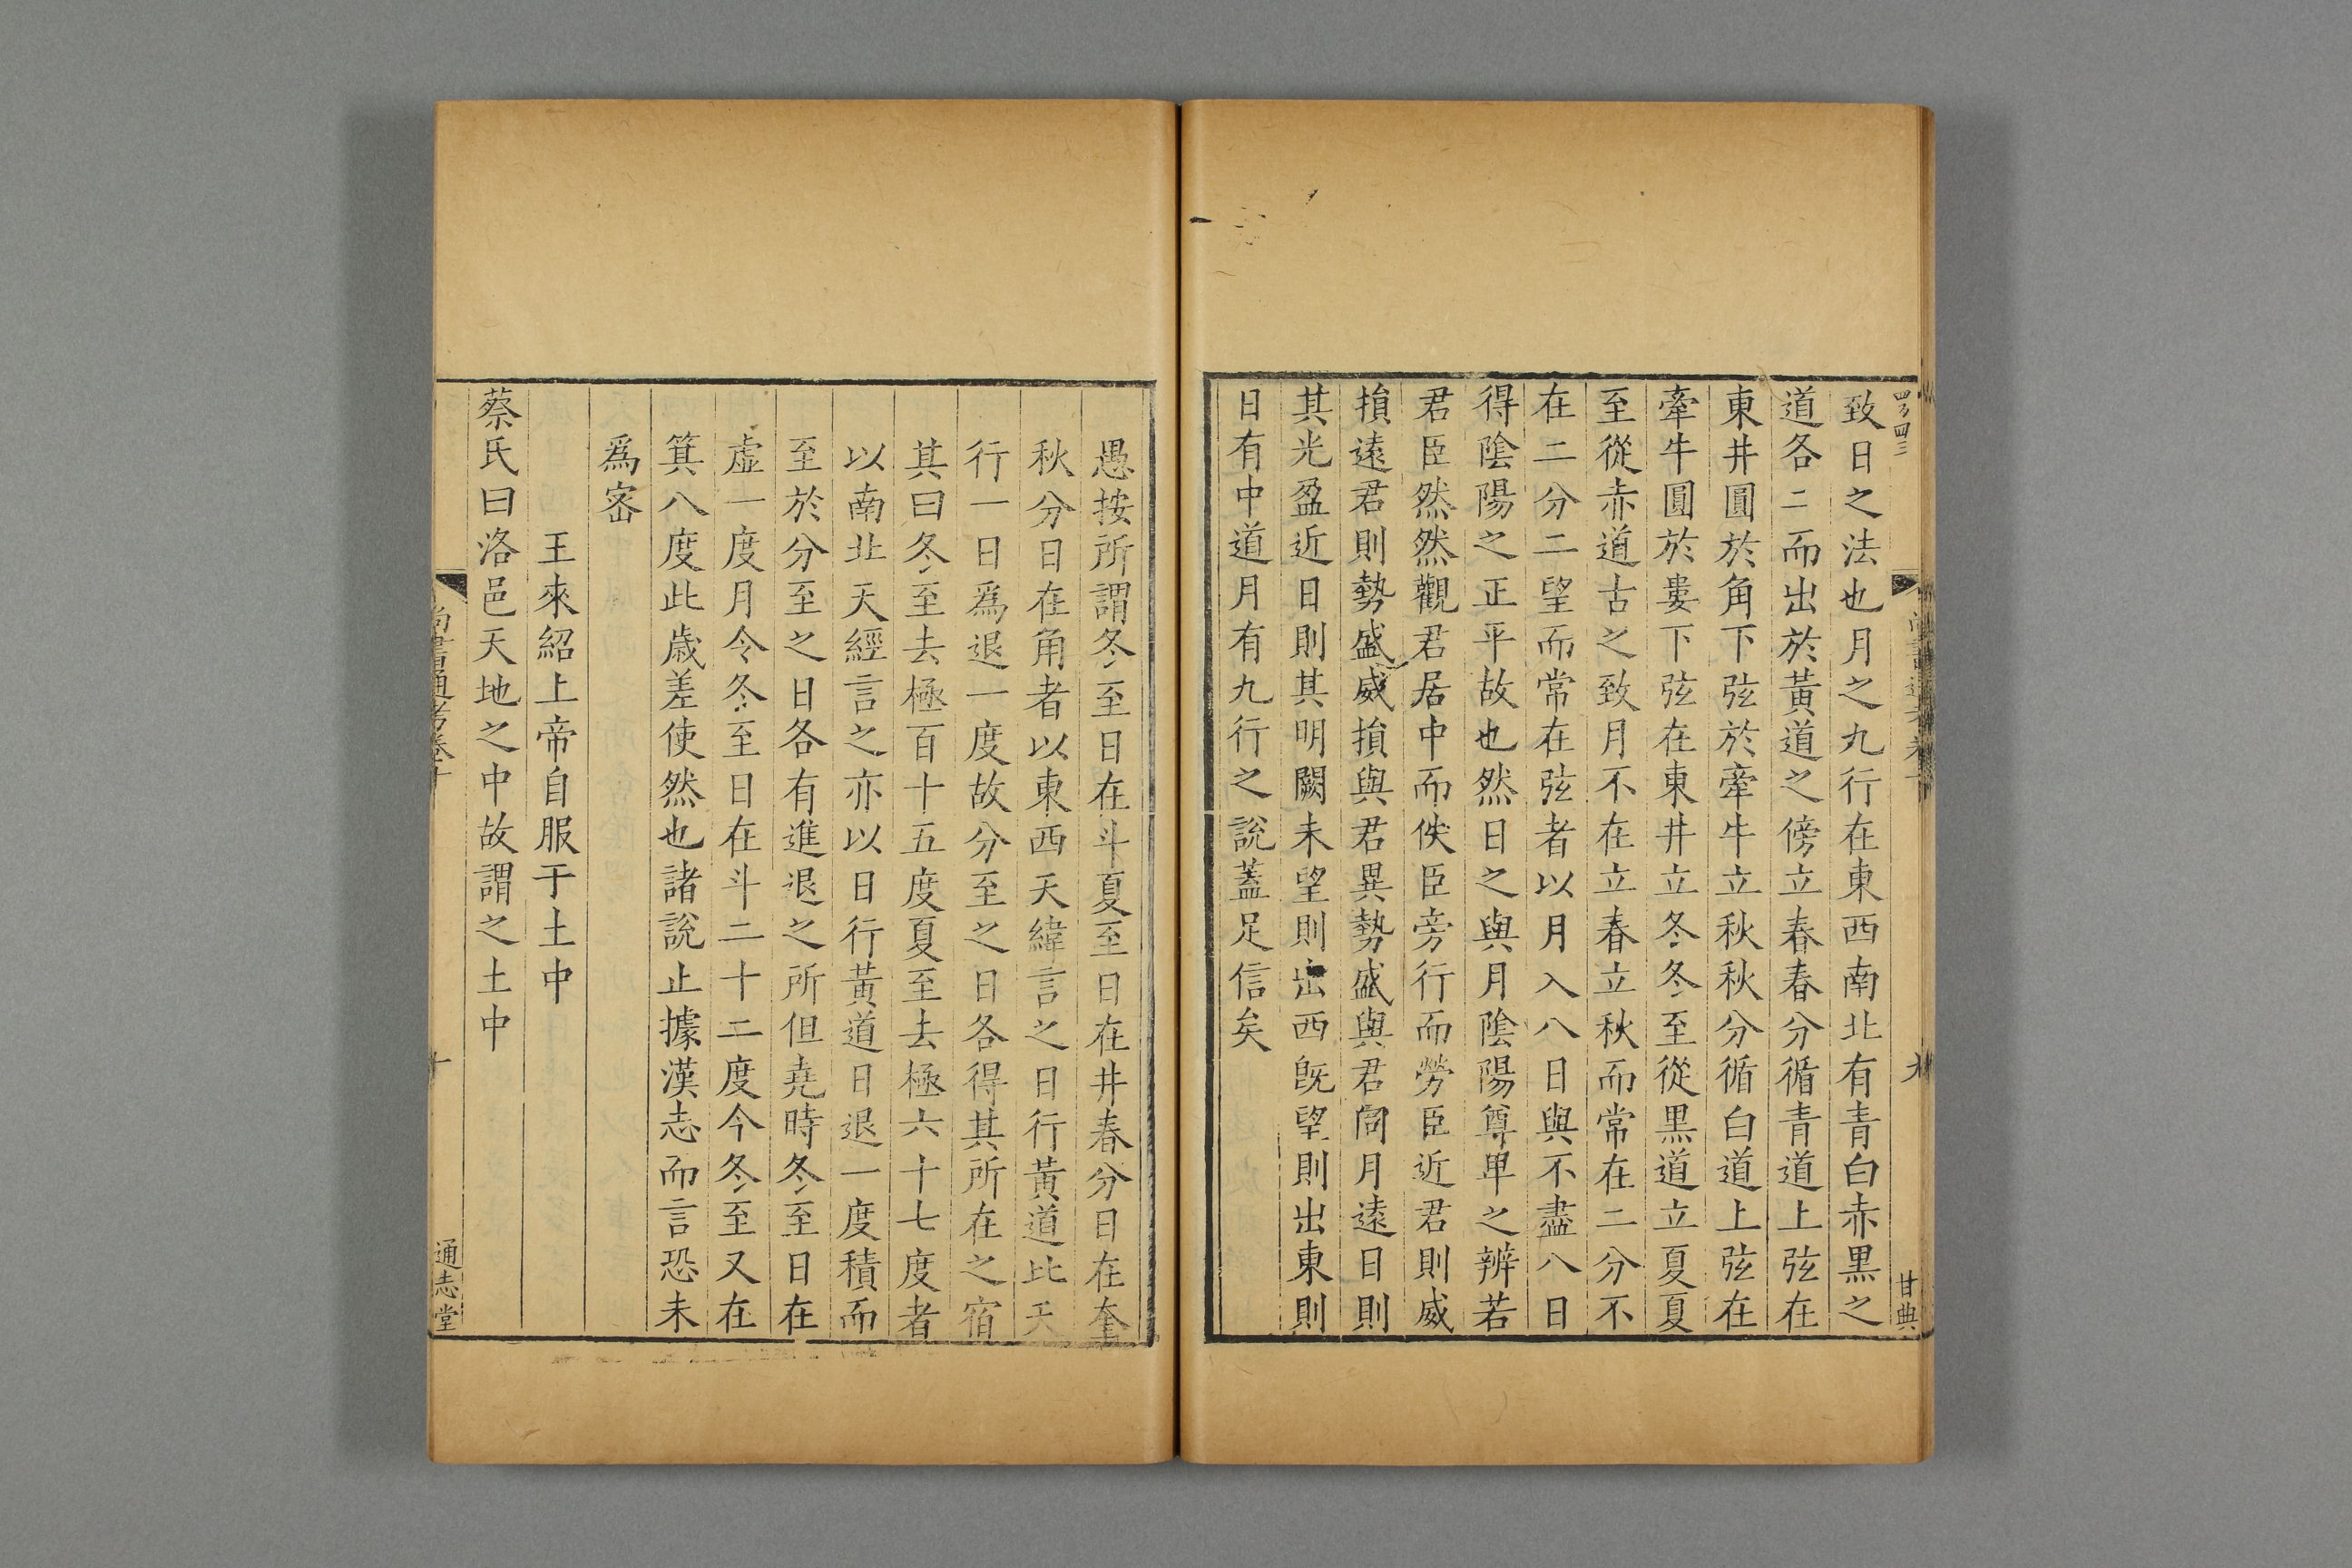 致日之法也月之九行在東西南北有青白赤黒之
道各二而出於黃道之傍立春春分循青道上弦在
東井圓於角下弦於牽牛立秋秋分循白道上弦在
牽牛圓於婁下弦在東井立冬冬至從黒道立夏夏
至從赤道古之致月不在立春立秋而常在二分不
在二分二望而常在弦者以月入八日與不盡八日
得陰陽之正平故也然日之與月陰陽尊卑之辨若
君臣然然觀君居中而佚臣旁行而勞臣近君則威
損遠君則勢盛威損與君異勢盛與君同月遠日則
其光盈近日則其明闕未望則出西旣望則出東則
日有中道月有九行之說蓋足信矣
甘典
愚按所謂冬至日在斗夏至日在井春分日在奎
秋分日在角者以東西天緯言之日行黃道比天
行一日爲退一度故分至之日各得其所在之宿
其曰冬至去極百十五度夏至去極六十七度者
以南北天經言之亦以日行黃道日退一度積而
至於分至之日各有進退之所但堯時冬至日在
虛一度月令冬至日在斗二十二度今冬至又在
箕八度此歲差使然也諸說止據漢志而言恐未
爲密
王來紹上帝自服于土中
蔡氏曰洛邑天地之中故謂之土中
尚書通考卷十
十
通志堂